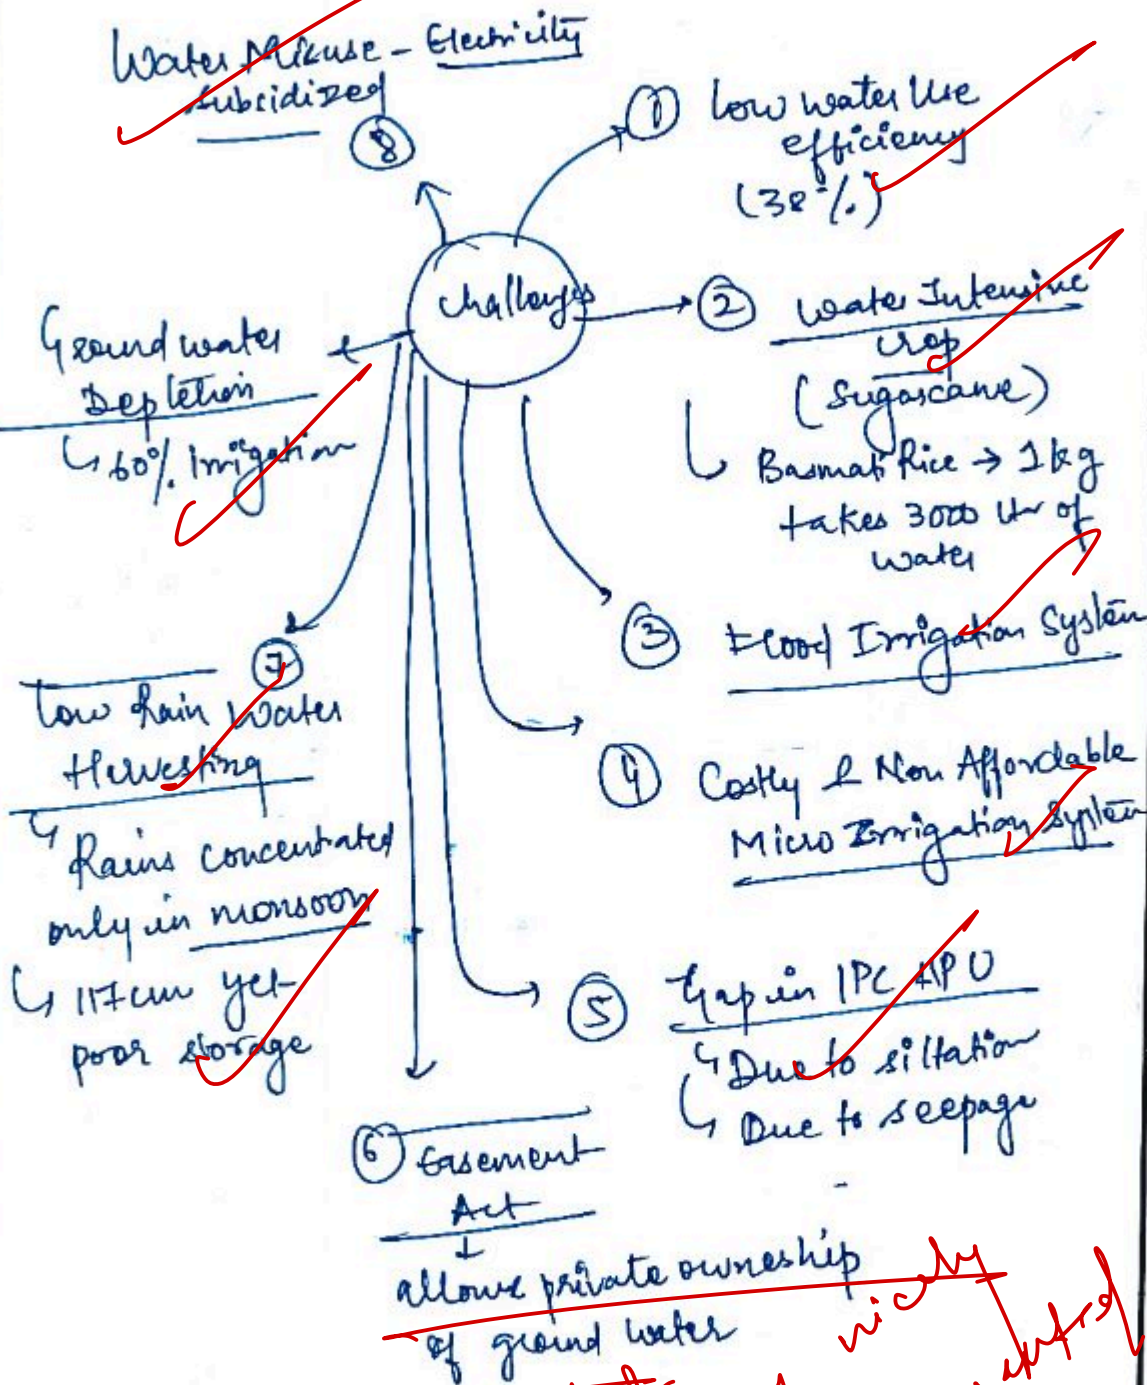 Water Misuse - Electricity
subsidized
8
1 Low water Use
efficiency
(38%)
Challenges
2 Water Intensive
crop
(Sugarcane)
Basmati Rice → 1 kg
takes 3000 ltr of
water
3 Flood Irrigation System
4 Costly & Non Affordable
Micro Irrigation System
5 Gap in IPC & IPU
Due to siltation
Due to seepage
6 Easement
Act
allows private owneship
of ground water
7
Low Rain Water
Harvesting
Rains concentrated
only in monsoon
117 cm yet
poor storage
Ground water
Depletion
60% irrigation
nicely